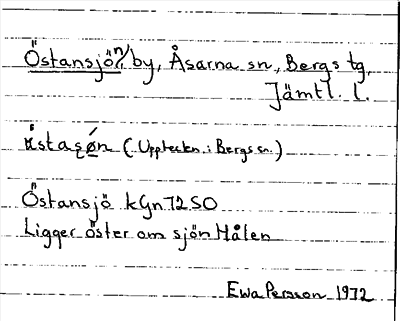 Östansjön, by, Åsarna sn, Bergs tg,
Jämtl. l.
(Uppteckn. i Bergs sn.)
Östansjö kGn72SO
Ligger öster om sjön Hålen
Ewa Persson 1972